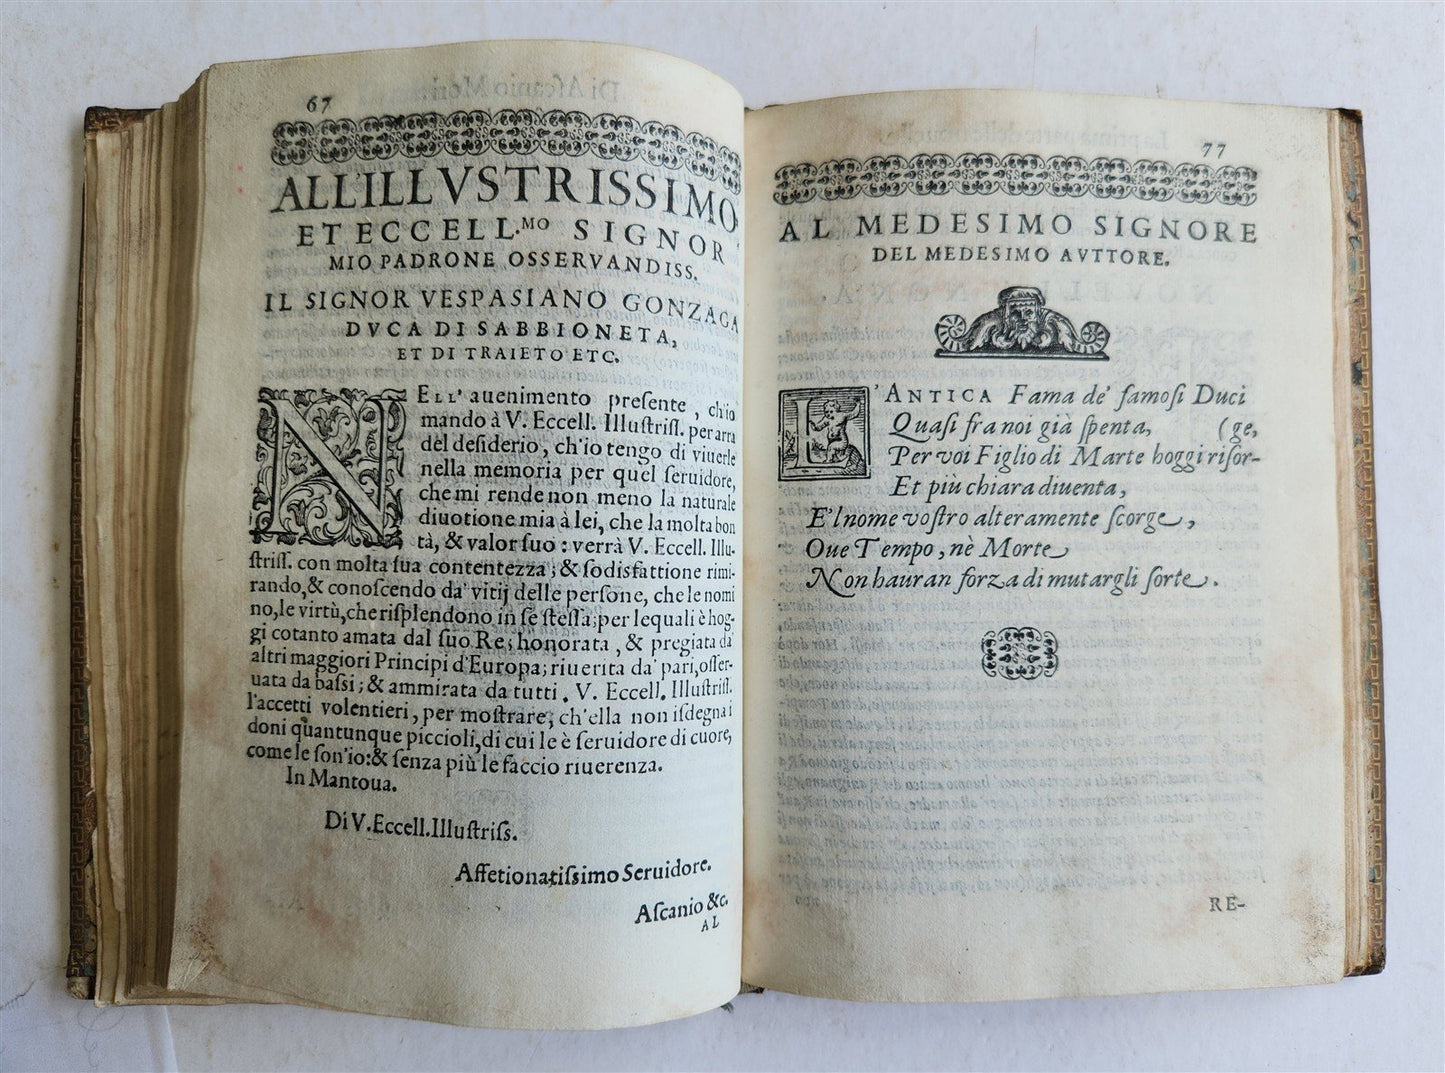 67
ALL'ILLVSTRISSIMO,
ET ECCELL.MO SIGNOR
MIO PADRONE OSSERVANDISS.
IL SIGNOR VESPASIANO GONZAGA
DVCA DI SABBIONETA,
ET DI TRAIETO ETC.
NELL' auenimento preſente, ch'io
mando à V. Eccell. Illuſtriſſ. per arra
del deſiderio, ch'io tengo di viuerle
nella memoria per quel ſeruidore,
che mi rende non meno la naturale
diuotione mia à lei, che la molta bon
tà, & valor ſuo: verrà V. Eccell. Illu-
ſtriſſ. con molta ſua contentezza; & ſodisfattione rimi-
rando, & conoſcendo da' vitij delle perſone, che le nomi
no, le virtù, che riſplendono in ſe ſteſſa; per le quali è hog-
gi cotanto amata dal ſuo Re; honorata, & pregiata da
altri maggiori Principi d'Europa; riuerita da' pari, oſſer-
uata da baſsi; & ammirata da tutti. V. Eccell. Illuſtriſſ.
l'accetti volentieri, per moſtrare, ch'ella non iſdegna i
doni quantunque piccioli, di cui le è ſeruidore di cuore,
come le ſon'io: & ſenza più le faccio riuerenza.
In Mantoua.
Di V. Eccell. Illuſtriſs.
Affetionatiſsimo Seruidore.
Aſcanio &c.
AL
77
AL MEDESIMO SIGNORE
DEL MEDESIMO AVTTORE.
L'ANTICA Fama de' famoſi Duci
Quaſi fra noi già ſpenta, (ge,
Per voi Figlio di Marte hoggi riſor-
Et più chiara diuenta,
E'l nome voſtro alteramente ſcorge,
Oue Tempo, nè Morte
Non hauran forza di mutargli ſorte.
RE-